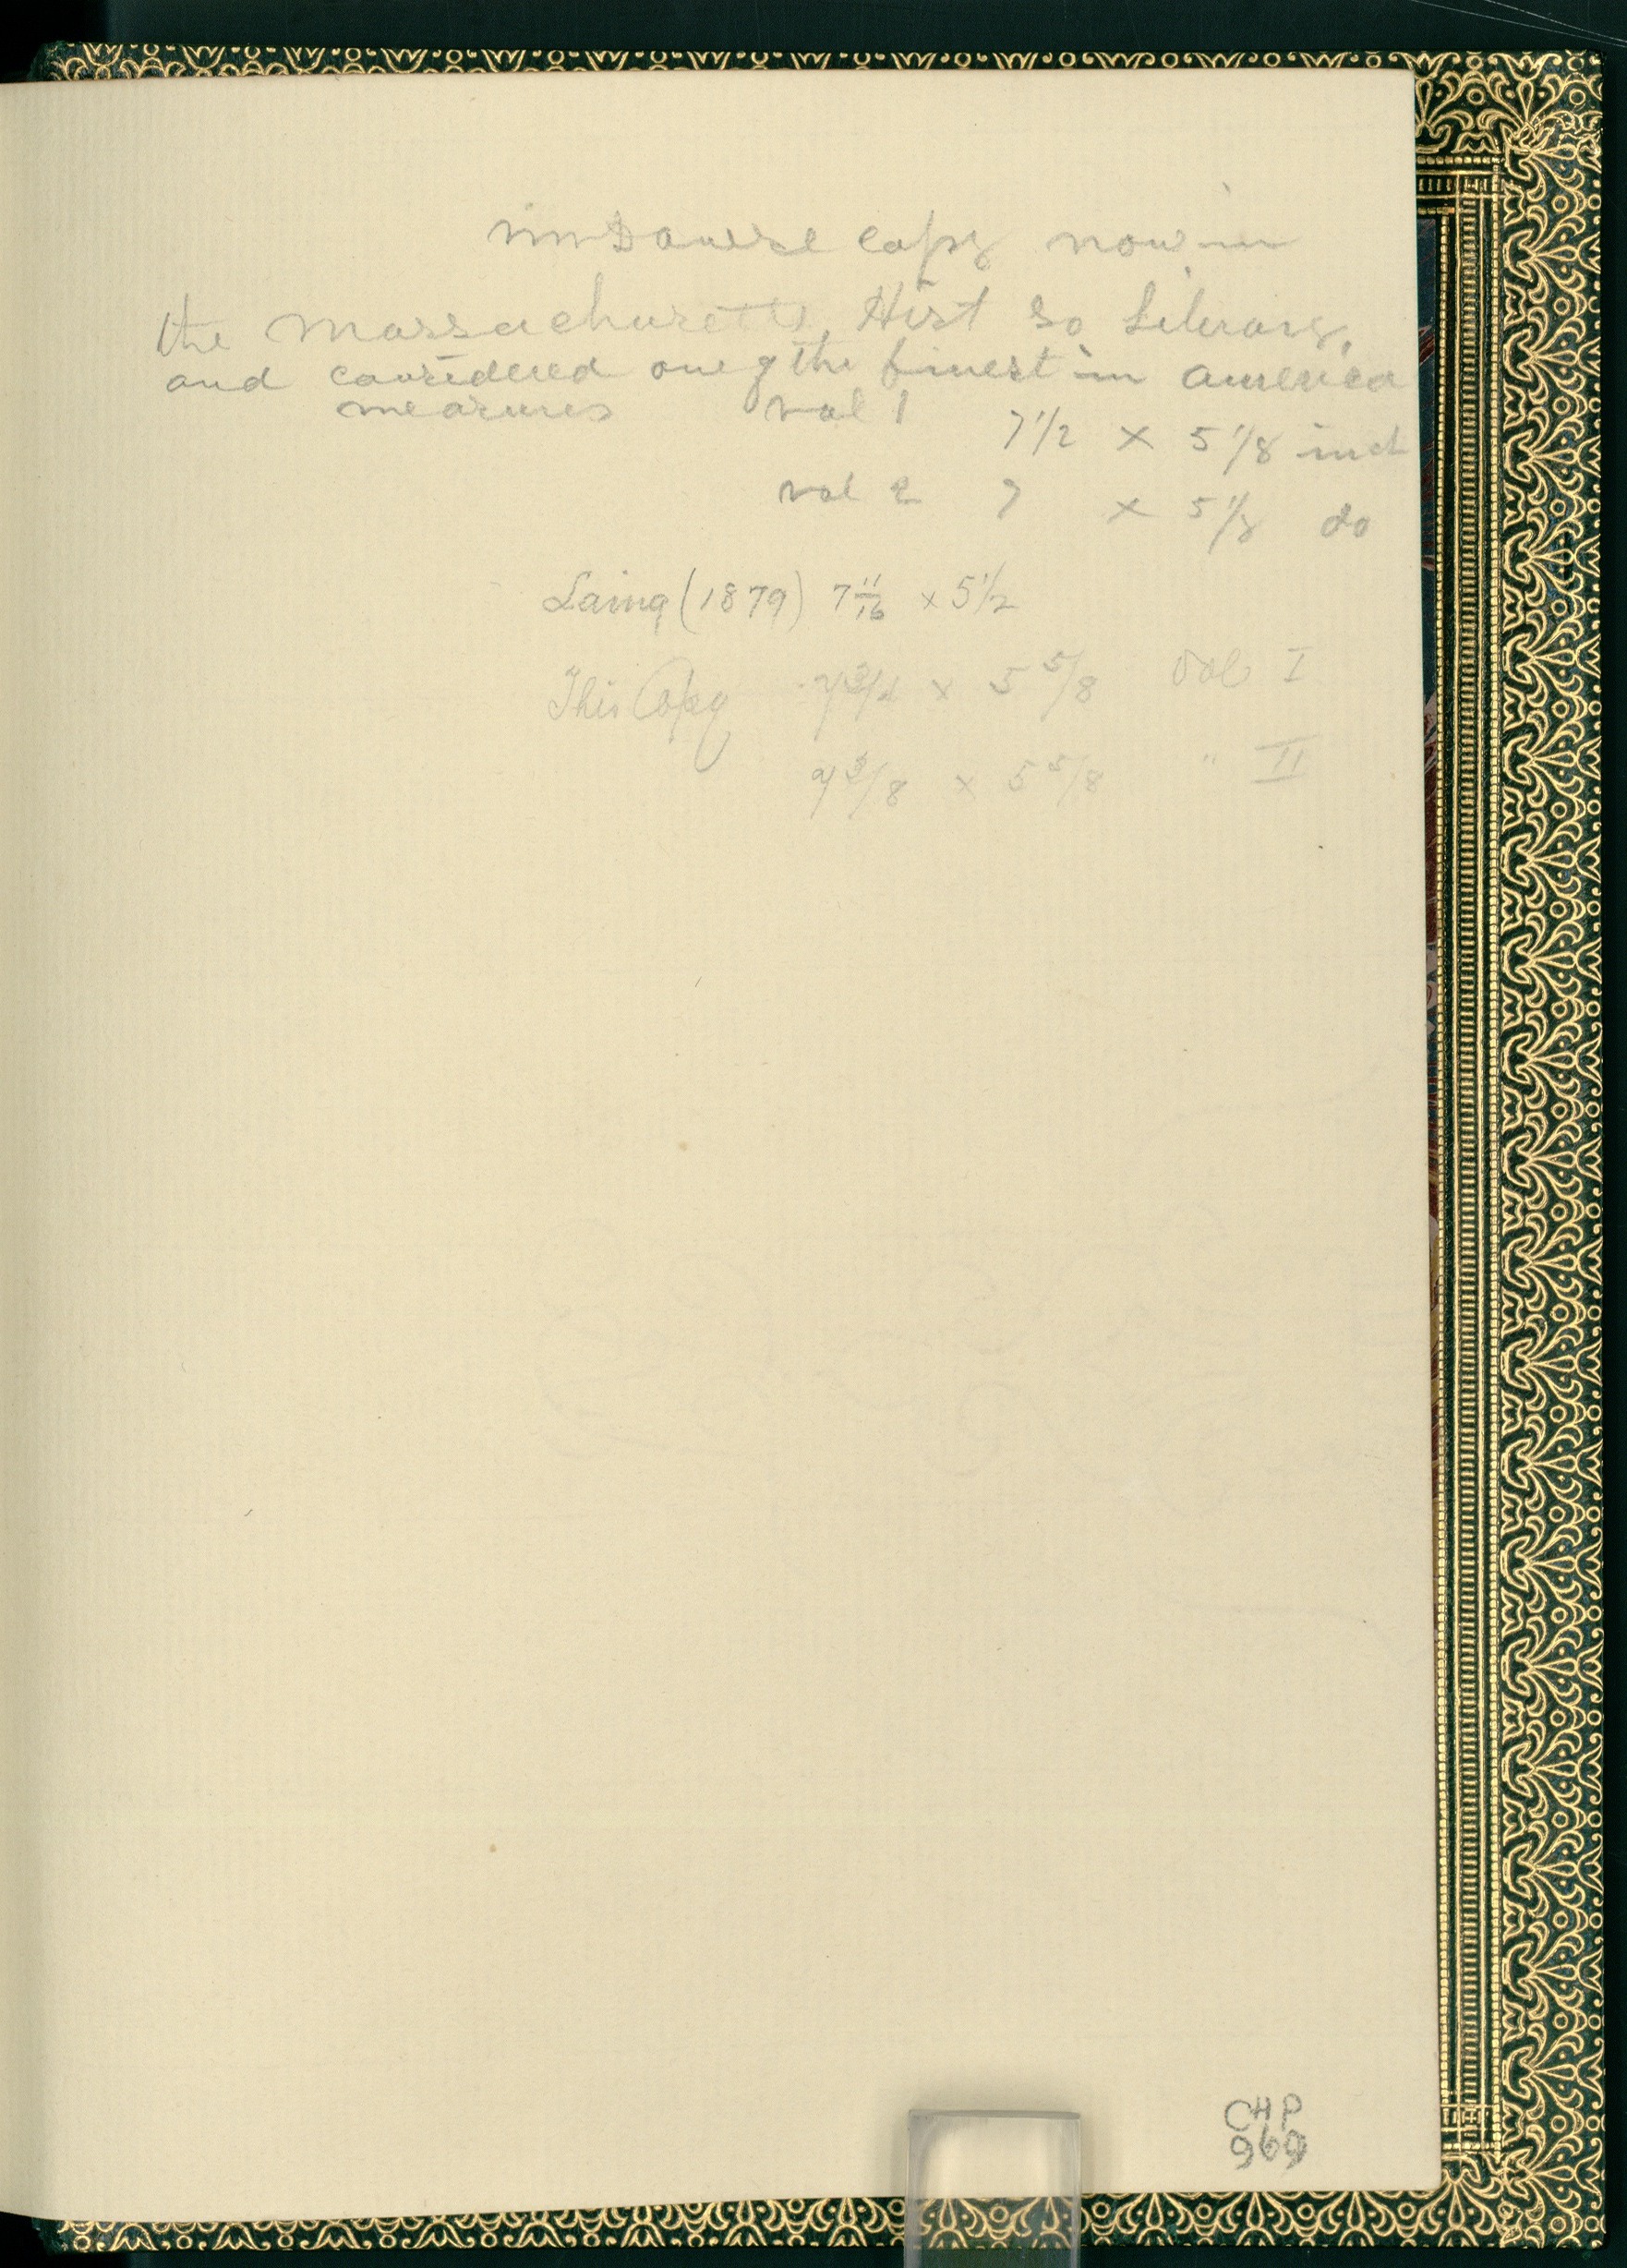 Mr Dowse copy now in
the Massachusetts Hist So Library,
and considered one of the finest in America
measures vol 1 7 1/2 × 5 1/8 inch
vol 2 7 × 5 1/8 do
Laing (1879) 7 11/16 × 5 1/2
This Copy 7 3/4 × 5 5/8 Vol I
7 3/8 × 5 5/8 " II
CHP
969